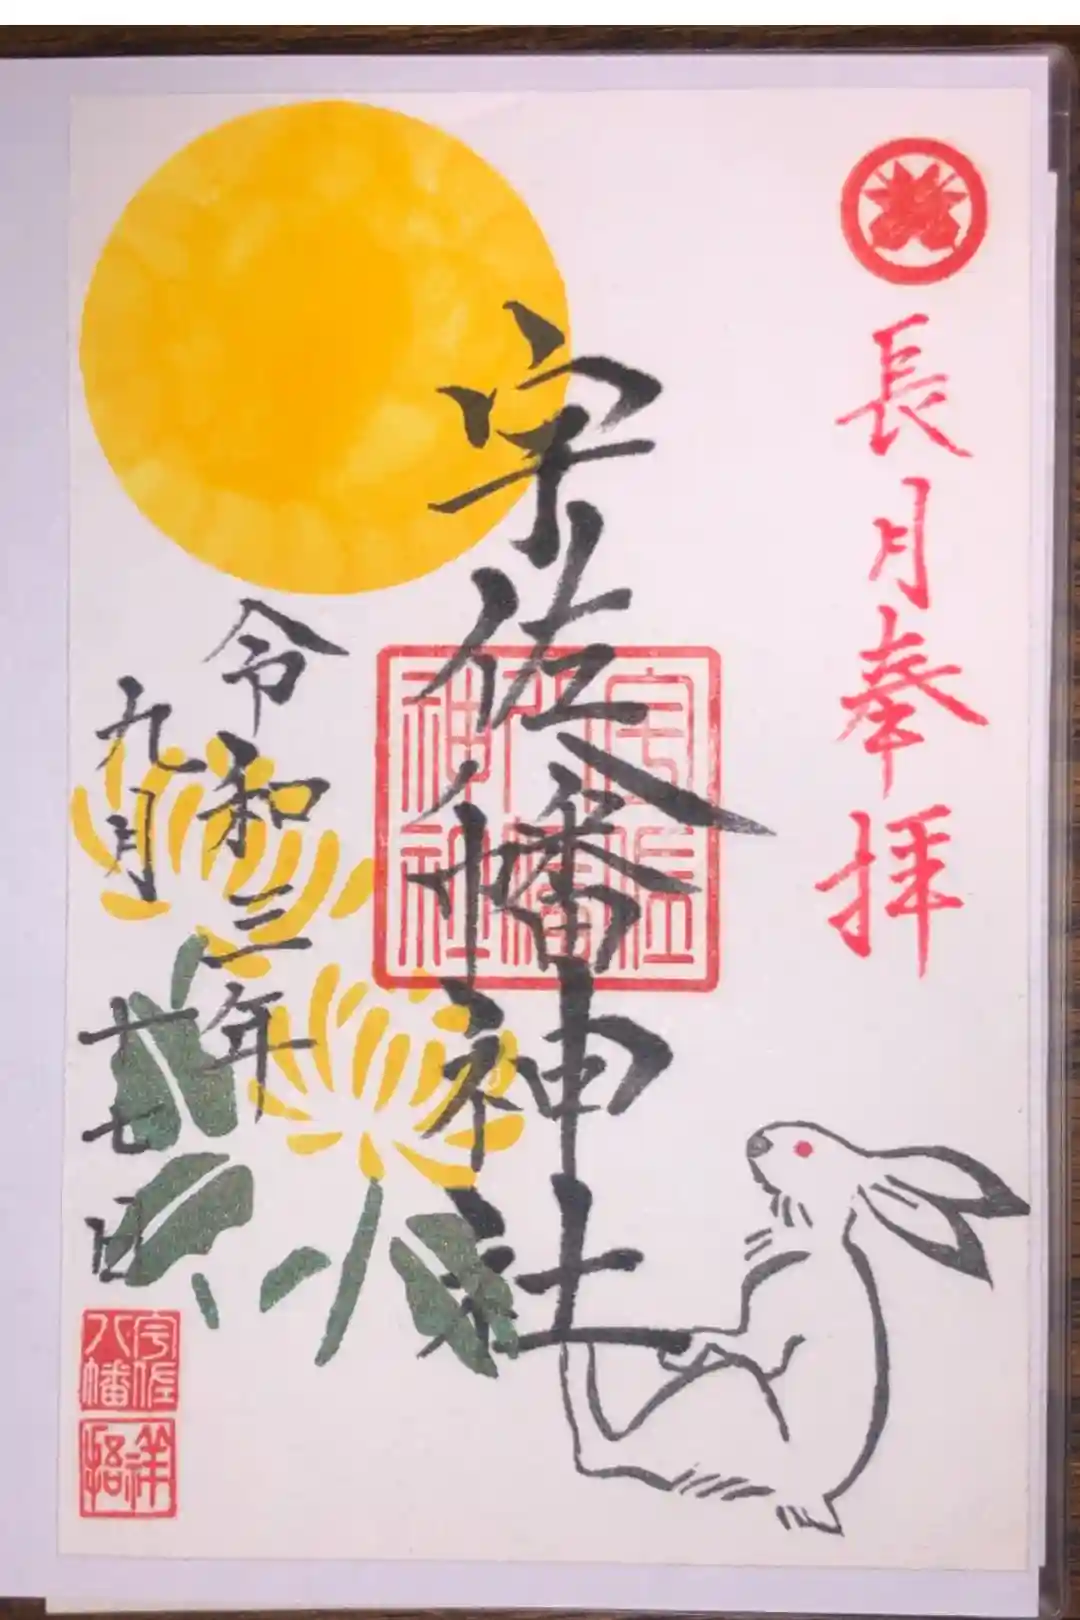 長月奉拝
宇佐八幡神社
宇佐
八幡
神社
令和三年
九月十七日
宇佐
八幡